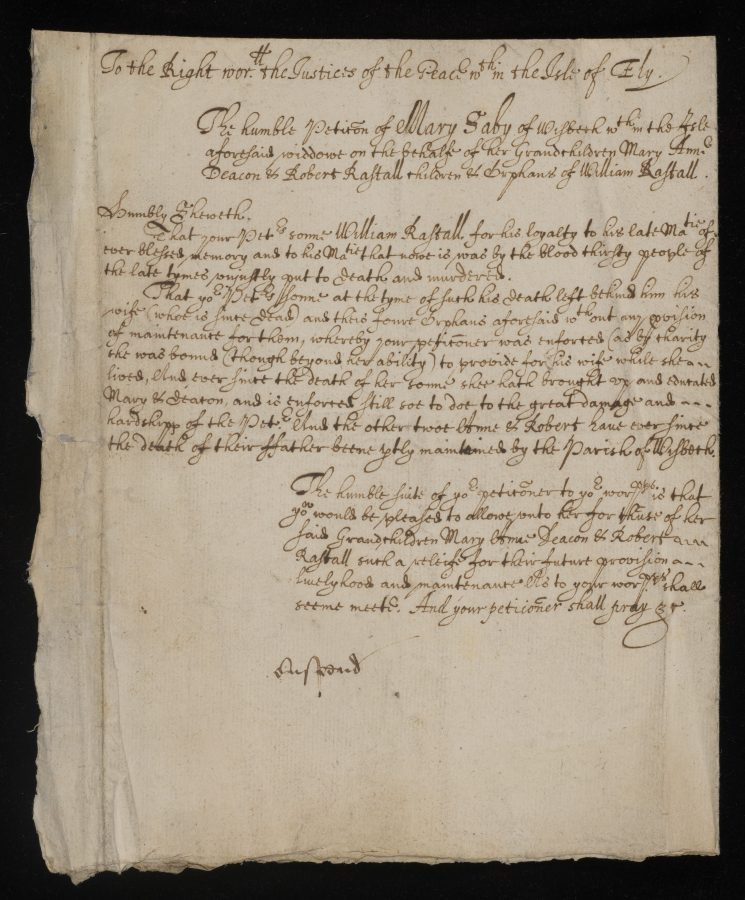 To the Right wor:tt the Justices of the Peace wth in the Isle of Ely.
The humble Peticon of Mary Saby of Wisbech wth in the Isle
aforesaid widdowe on the behalfe of her Grandchildren Mary Anne
Deacon & Robert Rastall children & Orphans of William Rastall.
Humbly Sheweth.
That your Petrs sonne William Rastall for his loyalty to his late Matie of
ever blessed memory and to his Matie that nowe is was by the blood thirsty people of
the late tymes unjustly put to death and murdered.
That yor Petrs sonne at the tyme of such his death left behind him his
wife (whoe is since dead) and theis foure Orphans aforesaid wth out any pvision
of maintenance for them, whereby your peticoner was enforced (as by charity
she was bound (though beyond her ability) to provide for his wife while she
lived, And ever since the death of her sonne shee hath brought up and educated
Mary & Deacon, and is enforced still soe to doe to the great damage and
hardshipp of the Petr. And the other twoe Anne & Robert have ever since
the death of their ffather beene ptly maintained by the Parish of Wisbech.
The humble suite of yor peticoner to yor worpps is that
you would be pleased to allowe unto her for thuse of her
said Grandchildren Mary Anne Deacon & Robert
Rastall such a releife for their future provision
livelyhood and maintenance As to your worpps shall
seeme meete. And your peticoner shall pray &c.